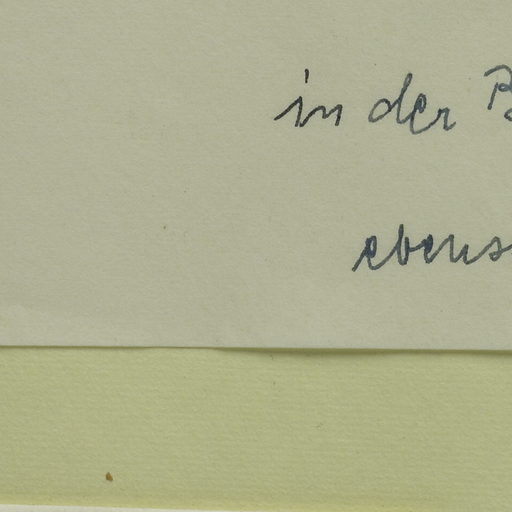 in der
ebens